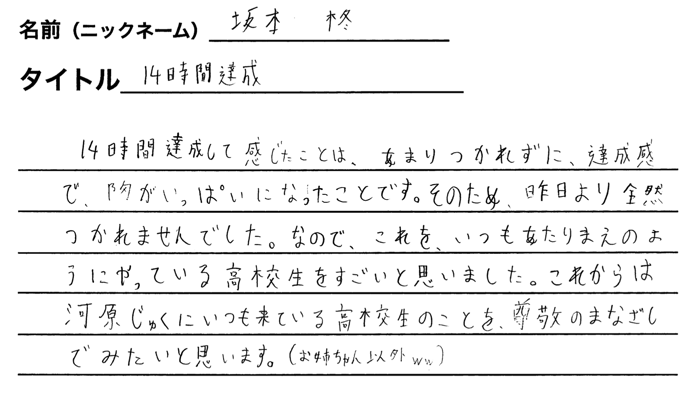 名前（ニックネーム） 坂本 柊
タイトル 14時間達成
14時間達成して感じたことは、あまりつかれずに、達成感
で、胸がいっぱいになったことです。そのため、昨日より全然
つかれませんでした。なので、これを、いつもあたりまえのよ
うにやっている高校生をすごいと思いました。これからは
河原じゅくにいつも来ている高校生のことを、尊敬のまなざし
でみたいと思います。（お姉ちゃん以外ww）